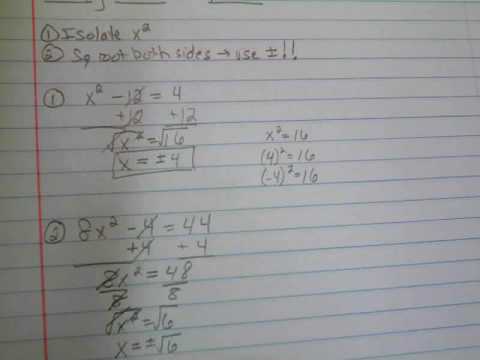 ① Isolate x²
② Sq root both sides → use ±!!
① x² - 12 = 4
+12 +12
√x² = √16
x = ±4
x² = 16
(4)² = 16
(-4)² = 16
② 8x² - 4 = 44
+4 +4
8x² = 48
8 8
√x² = √6
x = ±√6